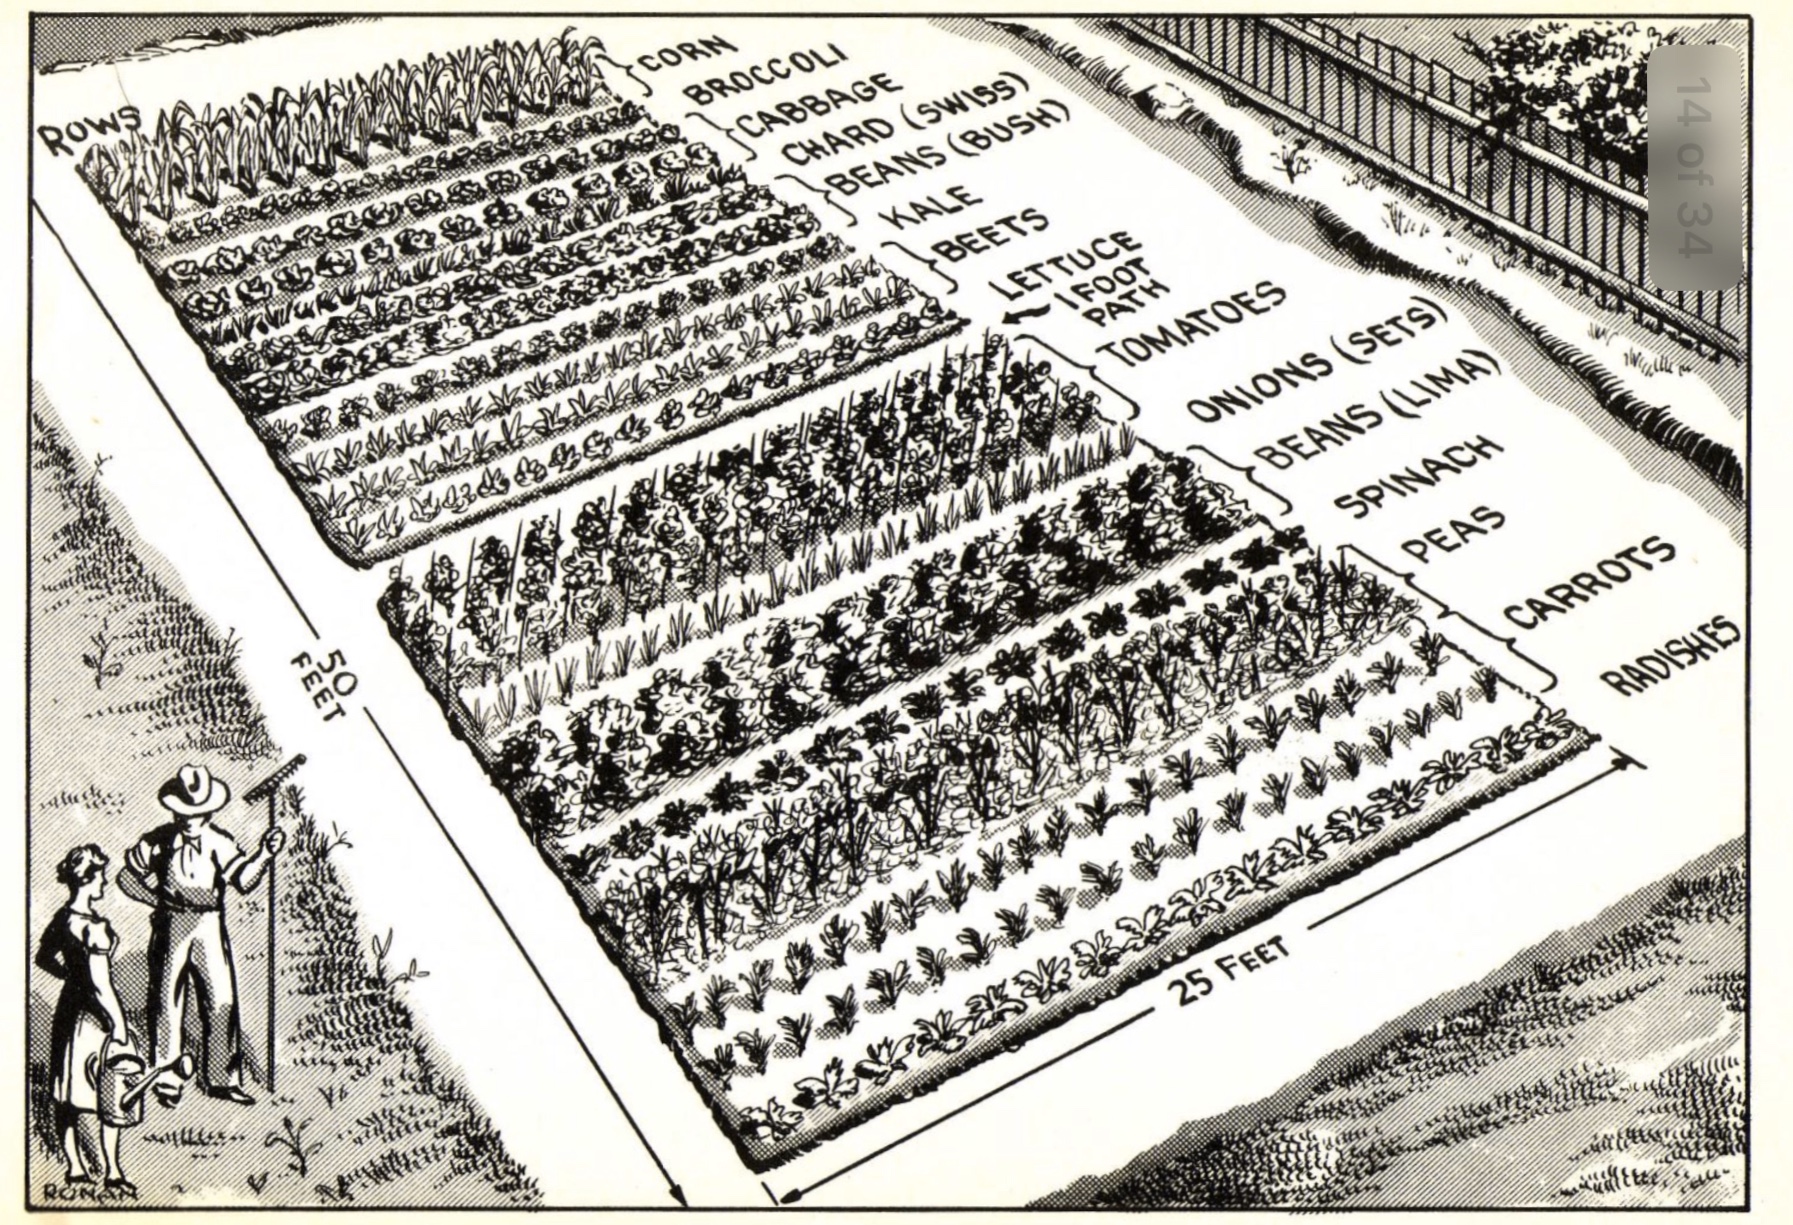 ROWS
CORN
BROCCOLI
CABBAGE
CHARD (SWISS)
BEANS (BUSH)
KALE
BEETS
LETTUCE
1 FOOT
PATH
TOMATOES
ONIONS (SETS)
BEANS (LIMA)
SPINACH
PEAS
CARROTS
RADISHES
50
FEET
25 FEET
RONAN
14 of 34